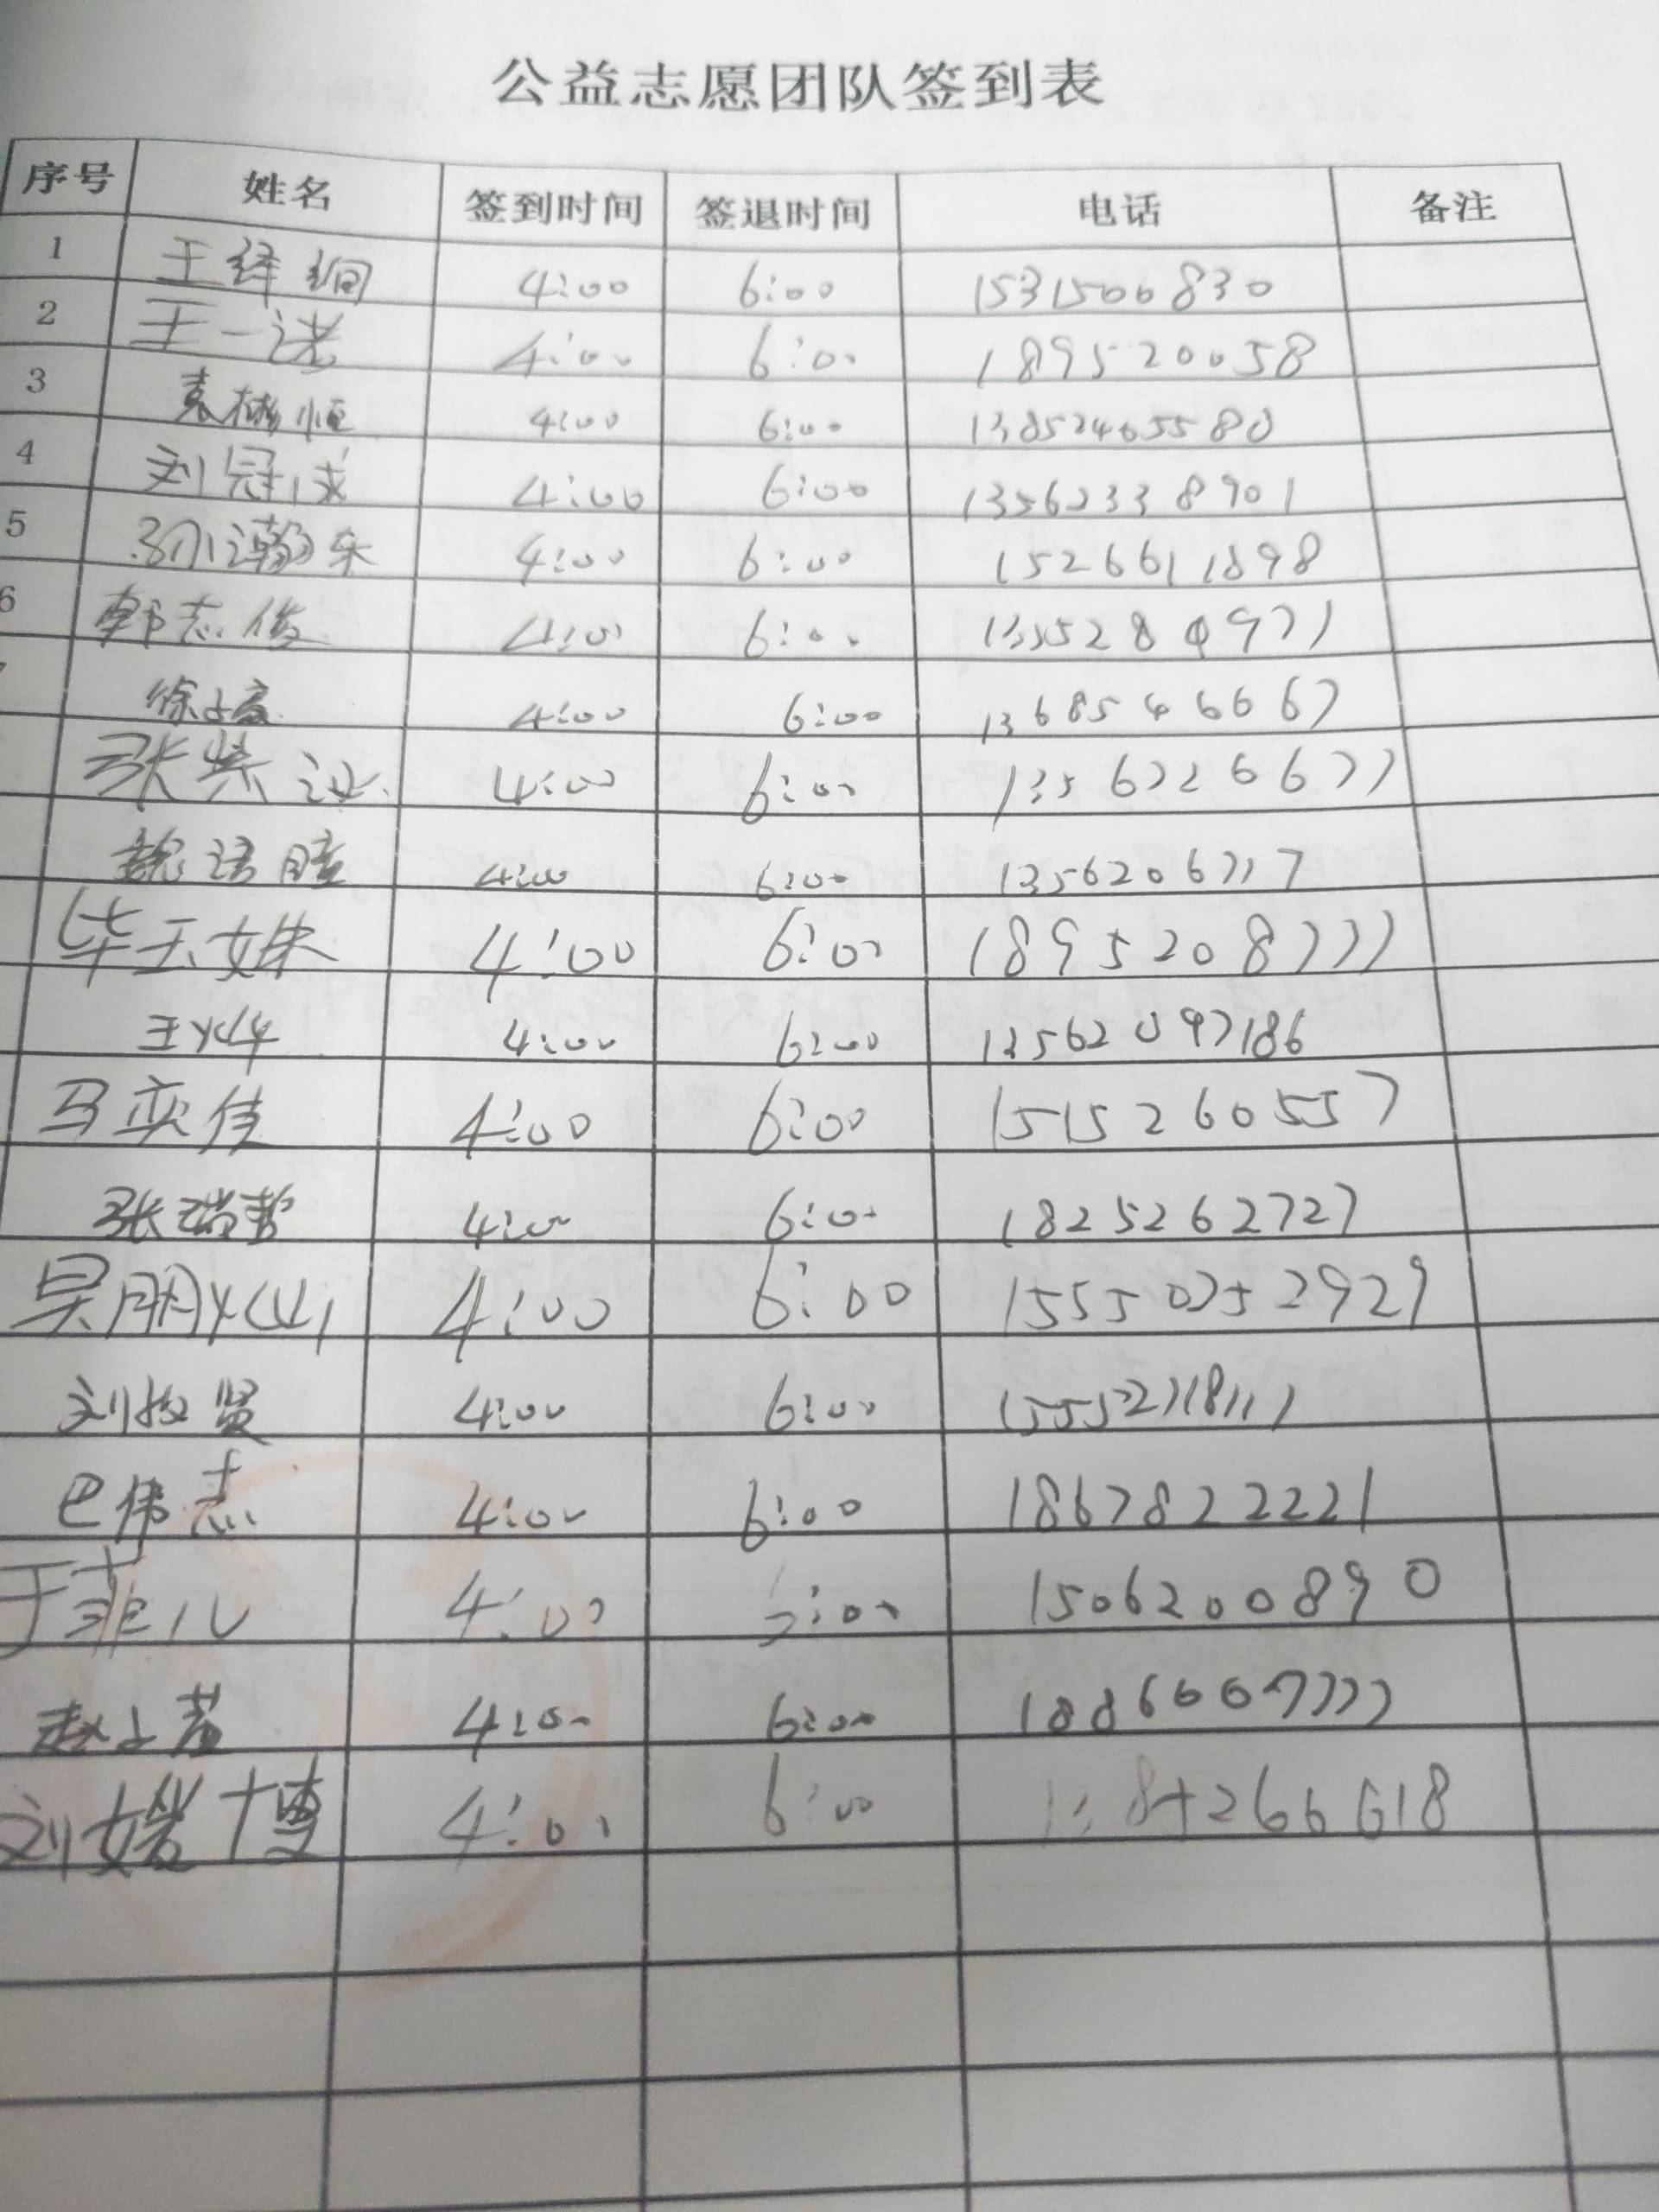 公益志愿团队签到表
序号 姓名 签到时间 签退时间 电话 备注
1 王绎烔 4:00 6:00 1531500830
2 王一诺 4:00 6:00 189520058
3 袁彬恒 4:00 6:00 13852465580
4 刘冠成 4:00 6:00 13562338901
5 孙灏东 4:00 6:00 1526611898
6 韩志俊 4:00 6:00
徐子 4:00 6:00 13685466667
张 4:00 6:00 13567226677
魏语瞳 4:00 6:00
毕玉姝 4:00 6:00 1895208777
王烨 4:00 6:00 13562097186
马奕佳 4:00 6:00 1515260557
张瑞哲 4:00 6:00 1825262727
吴朋灿 4:00 6:00 15550752929
刘牧贤 4:00 6:00
巴伟志 4:00 6:00 1867822221
于菲儿 4:00 :00 1506200890
赵子茗 4:00 6:00 18866667777
刘媛博 4:00 6:00